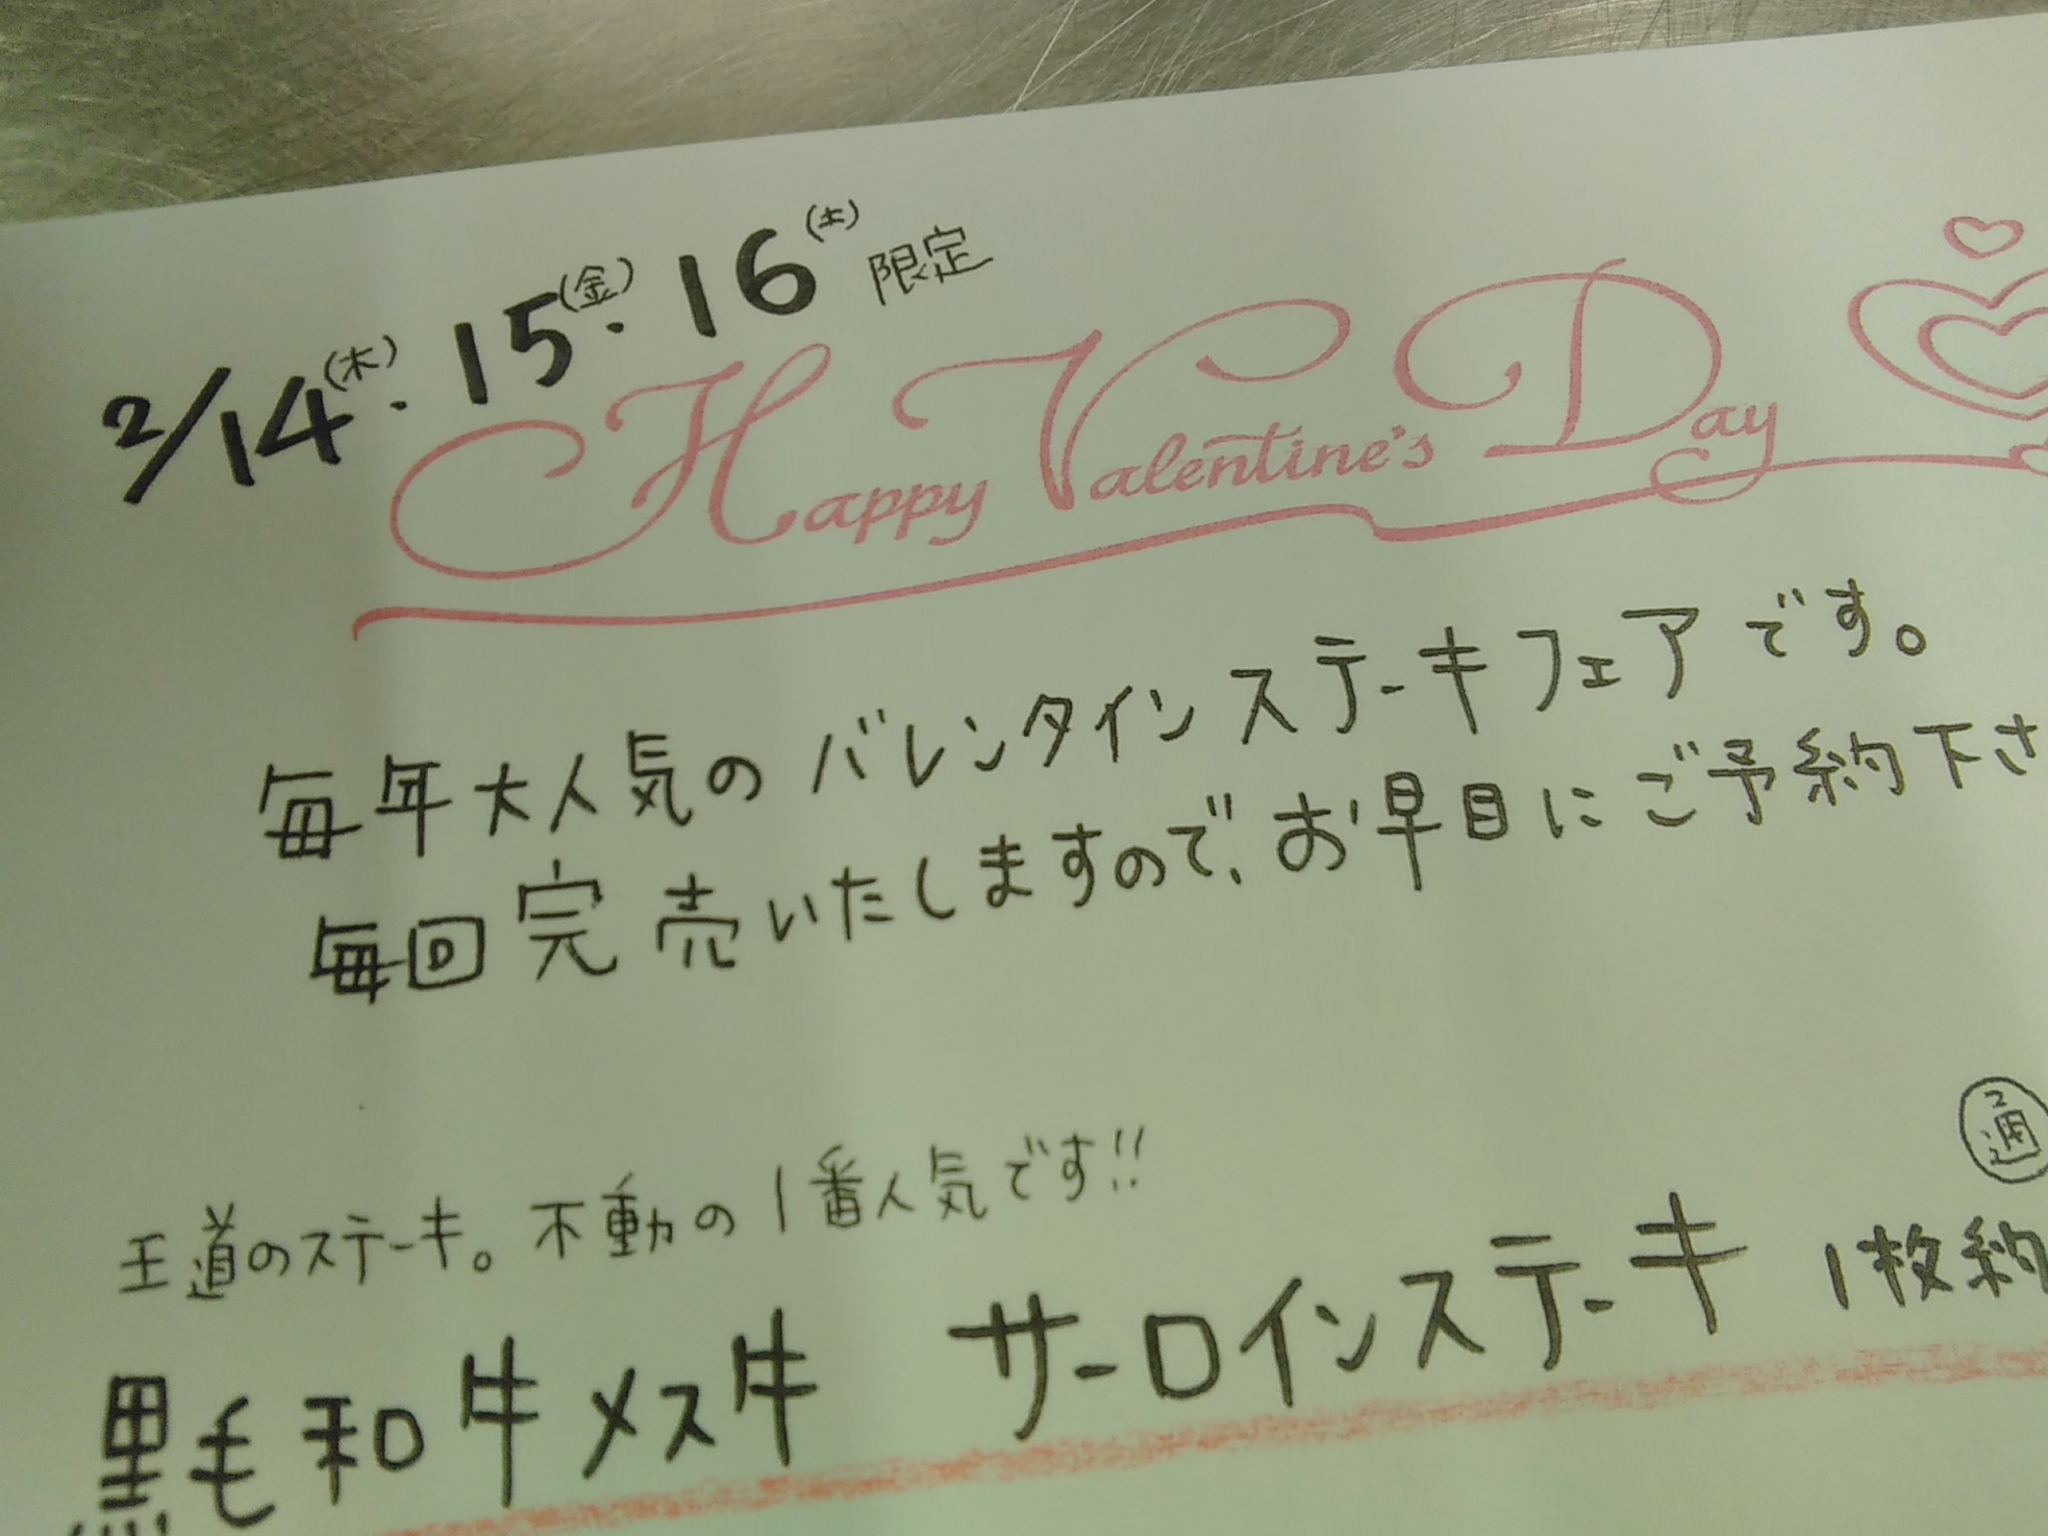 2/14(木)・15(金)・16(土)限定
Happy Valentine's Day
毎年大人気のバレンタインステーキフェアです。
毎回完売いたしますので、お早目にご予約下さ
王道のステーキ。不動の1番人気です!!
通
黒毛和牛メス牛 サーロインステーキ 1枚約